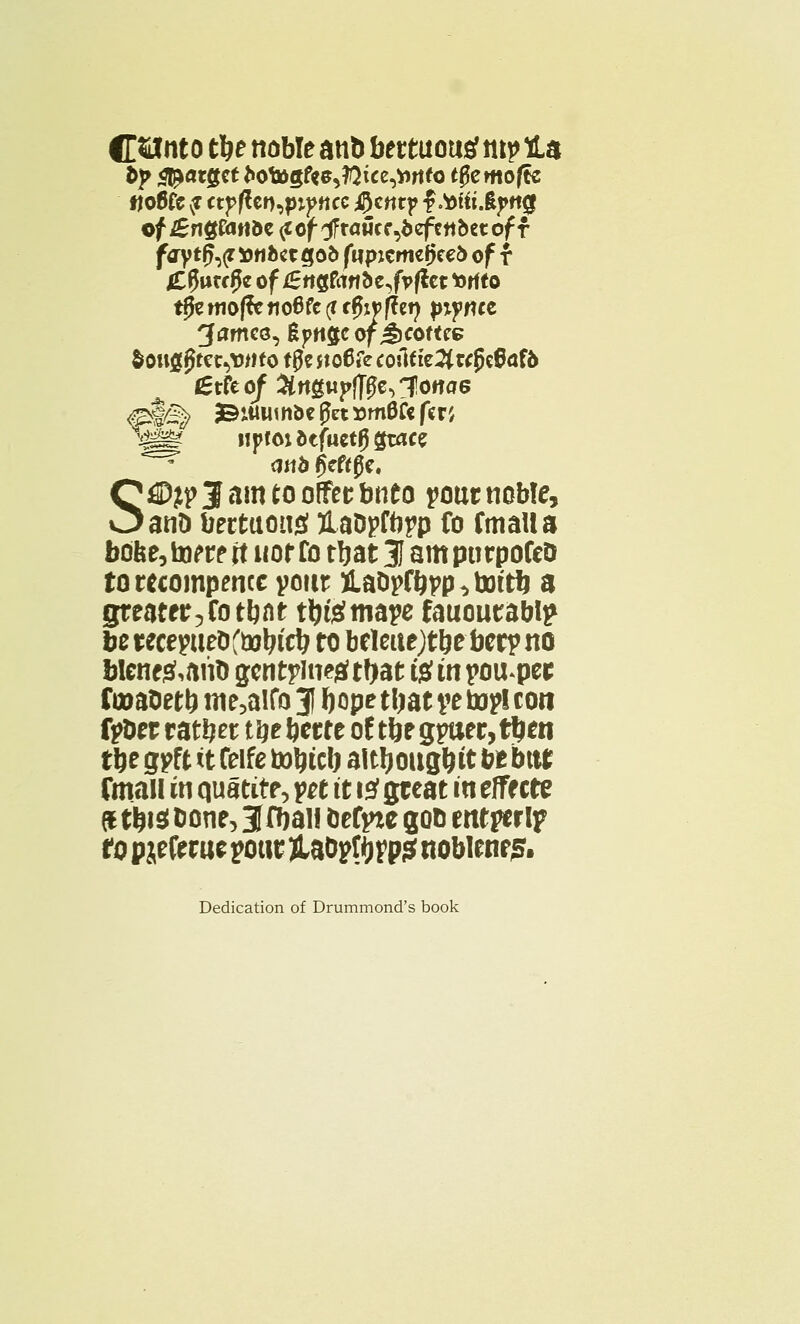 ❡Unto the noble and vertuous my La
dy Marget dowgles, Nice, vnto the moste
noble & crysten, prynce Henry ẏ .viii. kyng
of Englande & of Fraūce, defender of ẏ
fayth, & vnder god supreme heed of ẏ
Churche of Englande, syster vnto
the moste noble & chrysten prynce
James, kynge of Scottes
doughter, vnto the noble coūtie Archebald
Erle of Anguysshe, Jonas
Drūmnde her vmble ser-
uytor desueth grace
and helthe.
SOrp I am to offer vnto your noble,
and vertuous Ladyshyp so small a
boke, were it not so that I am purposed
to recompence your Ladyshyp, with a
greater, so that this maye fauourably
be receyued (which to beleue) the very no
blenes, and gentylnes that is in you per
swadeth me, also I hope that ye wyl con
syder rather the herte of the gyuer, then
the gyft it selfe which althoughit be but
small in quātite, yet it is great in effecte
& this done, I shall desyre god entyerly
to preserue your Ladyshyps noblenes.
Dedication of Drummond's book